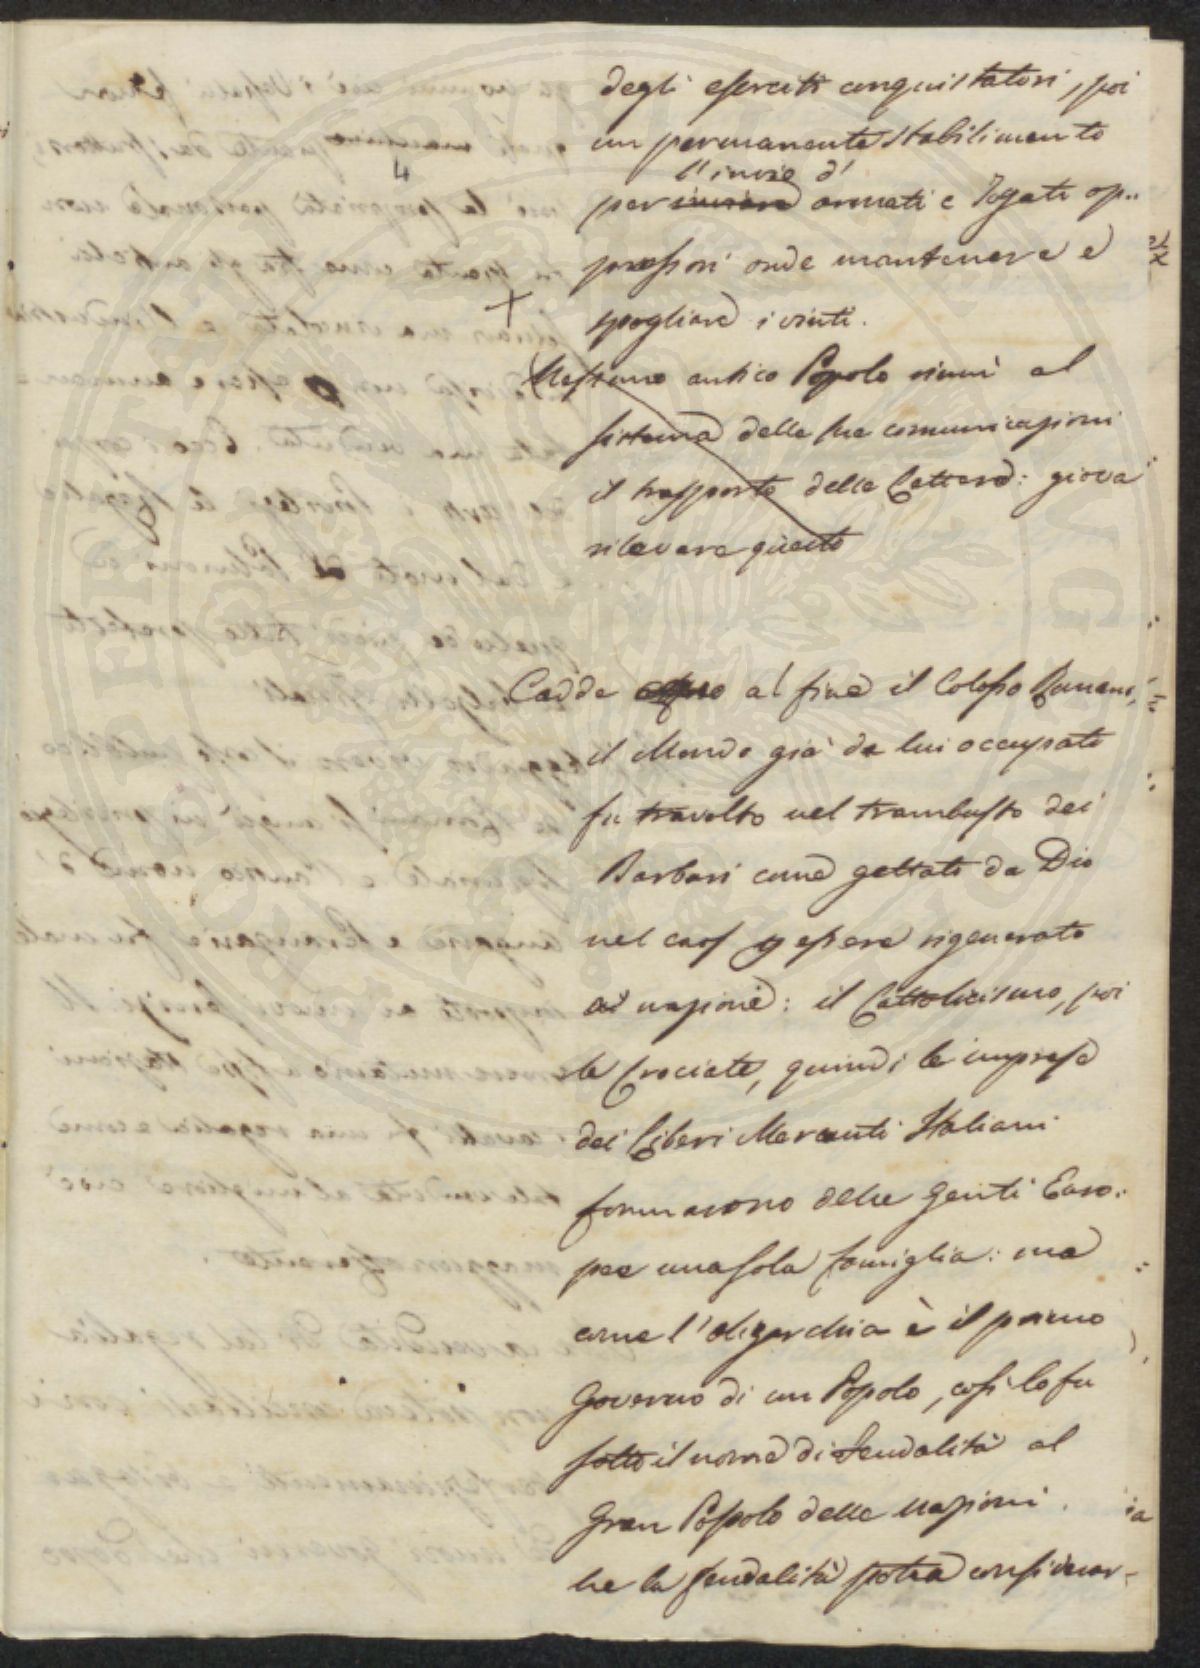 degli eserciti conquistatori, poi
un permanente stabilimento
l'invio d'
per inviare armati e Togati op..
pressori onde mantenere e
spogliare i vinti.
Nessuno antico Popolo riunì al
sistema delle sue comunicazioni
il trasporto delle Lettere: giova
rilevare questo
Cadde al fine il Colosso Romano,
il Mondo già da lui occupato
fu travolto nel trambusto dei
Barbari come gettato da Dio
nel caos essere rigenerato
a nazione: il Cattolicismo, poi
le Crociate, quindi le imprese
dei Liberi Mercanti Italiani
formarono delle Genti Euro.
pee una sola famiglia: ma
come l'oligarchia è il primo
Governo di un Popolo, così lo fu
sotto il nome di Feudalità al
Gran Popolo delle Nazioni.
Ne la feudalità potea consiederar-